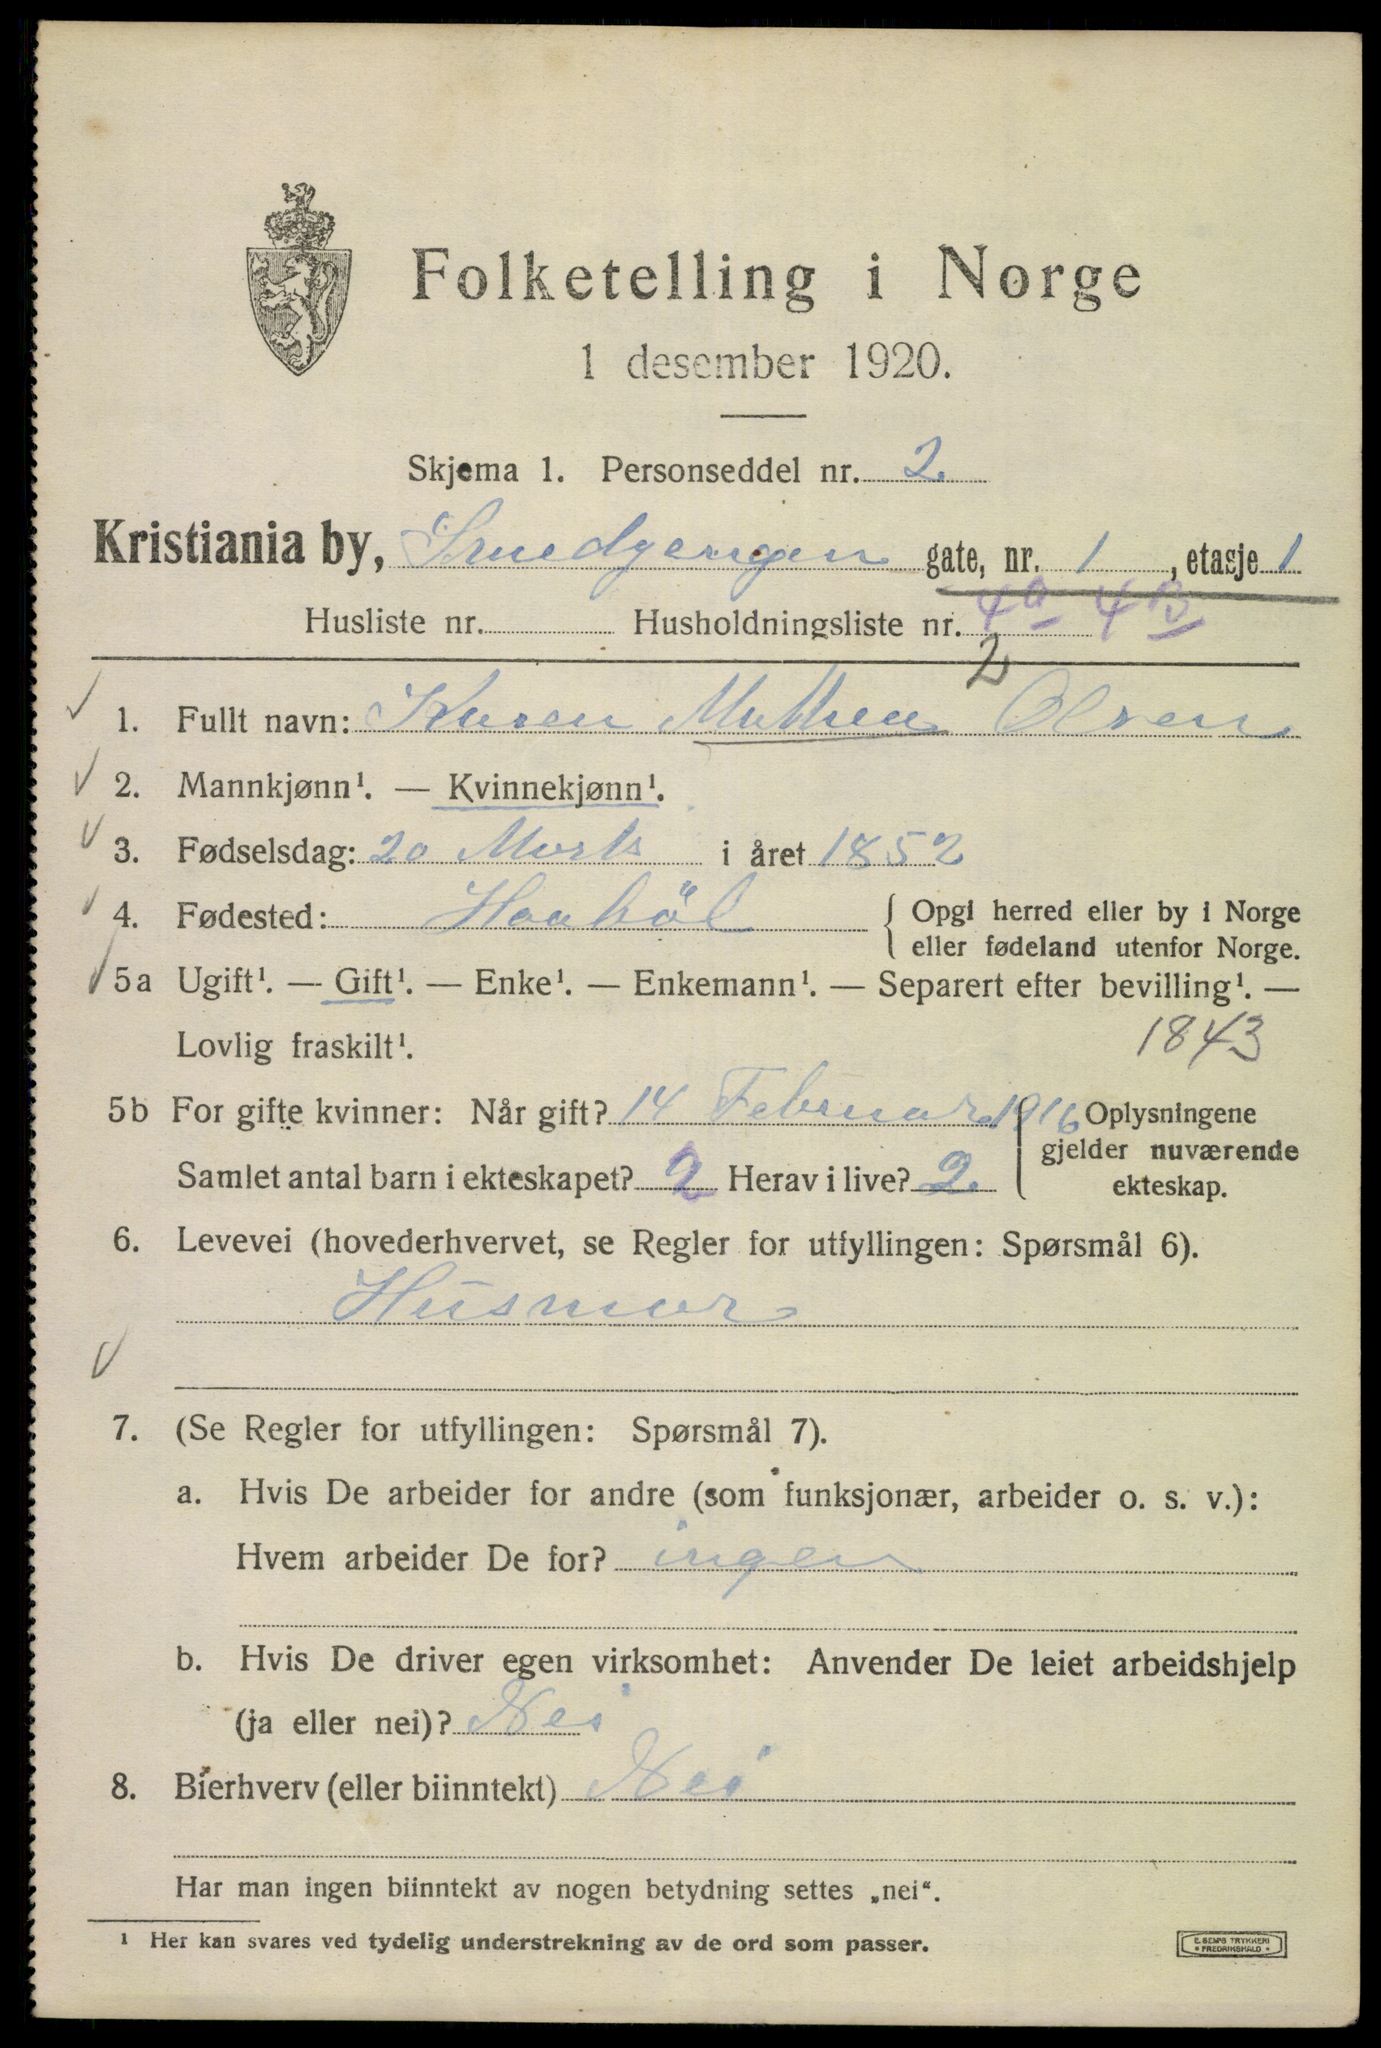 Folketelling i Norge
1 desember 1920.
Skjema 1. Personseddel nr. 2.
Kristiania by, Smedgengen gate, nr. 1, etasje 1
Husliste nr. Husholdningsliste nr. 4a 4B
2
1. Fullt navn: Karen Mathea Olsen
2. Mannkjønn¹. — Kvinnekjønn¹.
3. Fødselsdag: 20 Marts i året 1852
4. Fødested: Haaböl { Opgi herred eller by i Norge
eller fødeland utenfor Norge.
5a Ugift¹. — Gift¹. — Enke¹. — Enkemann¹. — Separert efter bevilling¹. —
Lovlig fraskilt¹. 1843
5b For gifte kvinner: Når gift? 14 Februar 1916 Oplysningene
gjelder nuværende
Samlet antal barn i ekteskapet? 2 Herav i live? 2. ekteskap.
6. Levevei (hovederhvervet, se Regler for utfyllingen: Spørsmål 6).
Husmor
7. (Se Regler for utfyllingen: Spørsmål 7).
a. Hvis De arbeider for andre (som funksjonær, arbeider o. s. v.):
Hvem arbeider De for? ingen
b. Hvis De driver egen virksomhet: Anvender De leiet arbeidshjelp
(ja eller nei)? Nei
8. Bierhverv (eller biinntekt) Nei
Har man ingen biinntekt av nogen betydning settes „nei“.
¹ Her kan svares ved tydelig understrekning av de ord som passer.
E. SEMS TRYKKERI
* FREDRIKSHALD *